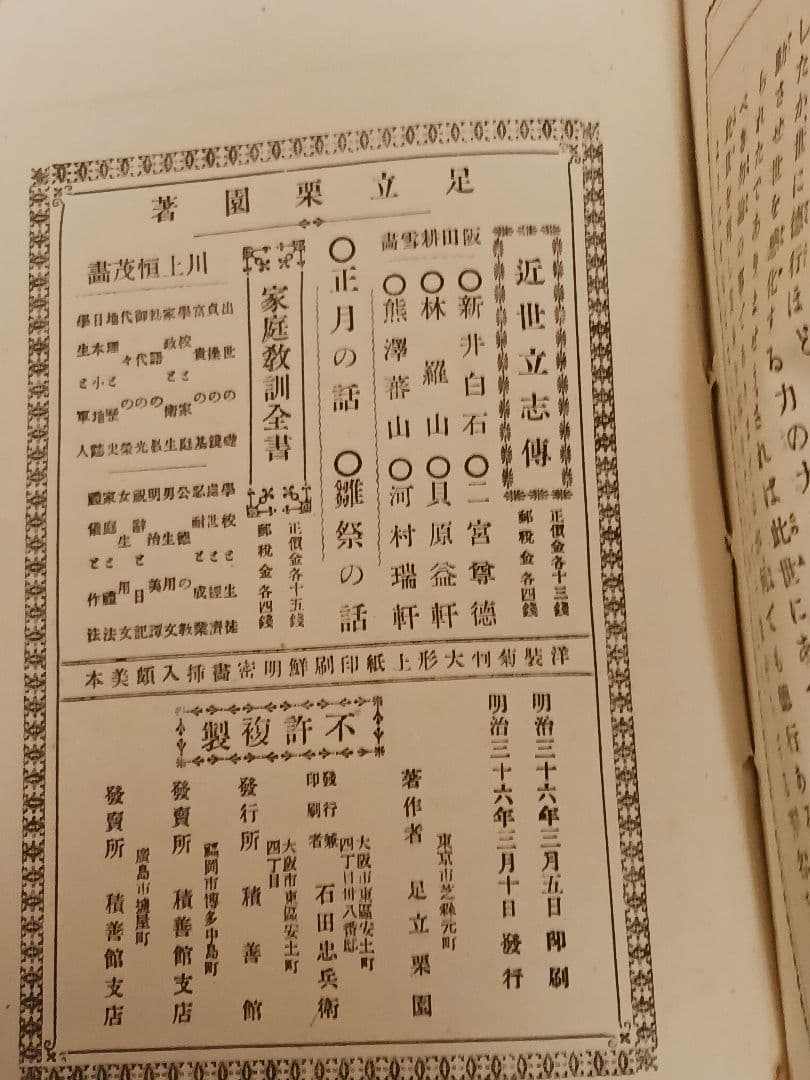 足立栗園著
近世立志傳
正價金各十三錢
郵税金各四錢
阪田耕雪畵
○新井白石○二宮尊德
○林羅山○貝原益軒
○熊澤蕃山○河村瑞軒
○正月の話○雛祭の話
家庭教訓全書
正價金各十五錢
郵税金各四錢
川上恒茂畵
出世の礎
貞操の鏡
富貴の基
學校と家庭
家政と衛生
御代の光
代々の榮
地理と歷史
日本小地誌
學生と軍人
學校と生徒
處世と經濟
忍耐と成業
公德の教
男生用文
明治美譚
祝辭と日記
女生用文
家庭と禮法
體儀と作法
洋裝菊判大形上紙印刷鮮明密畵挿入頗美本
明治三十六年三月五日印刷
明治三十六年三月十日發行
不許複製
東京市芝區元町
著作者 足立栗園
大阪市東區安土町
四丁目卅八番邸
發行兼
印刷者
石田忠兵衛
大阪市東區安土町
四丁目
發行所 積善館
福岡市博多中島町
發賣所 積善館支店
廣島市塩屋町
發賣所 積善館支店